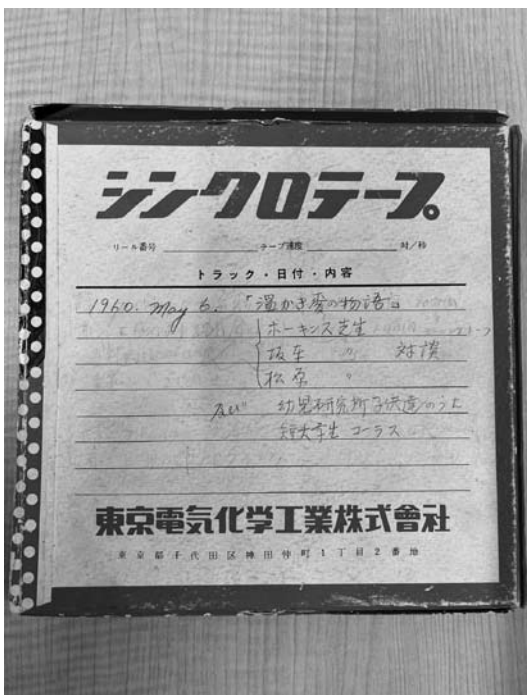 シンクロテープ
リール番号 テープ速度 吋/秒
トラック・日付・内容
1960. May 6. 「温かき雪の物語」
ホーキンス先生
坂本 〃 対談
松原 〃
及び 幼児研究所子供達のうた
短大学生 コーラス
東京電気化学工業株式會社
東京都千代田区神田仲町1丁目2番地